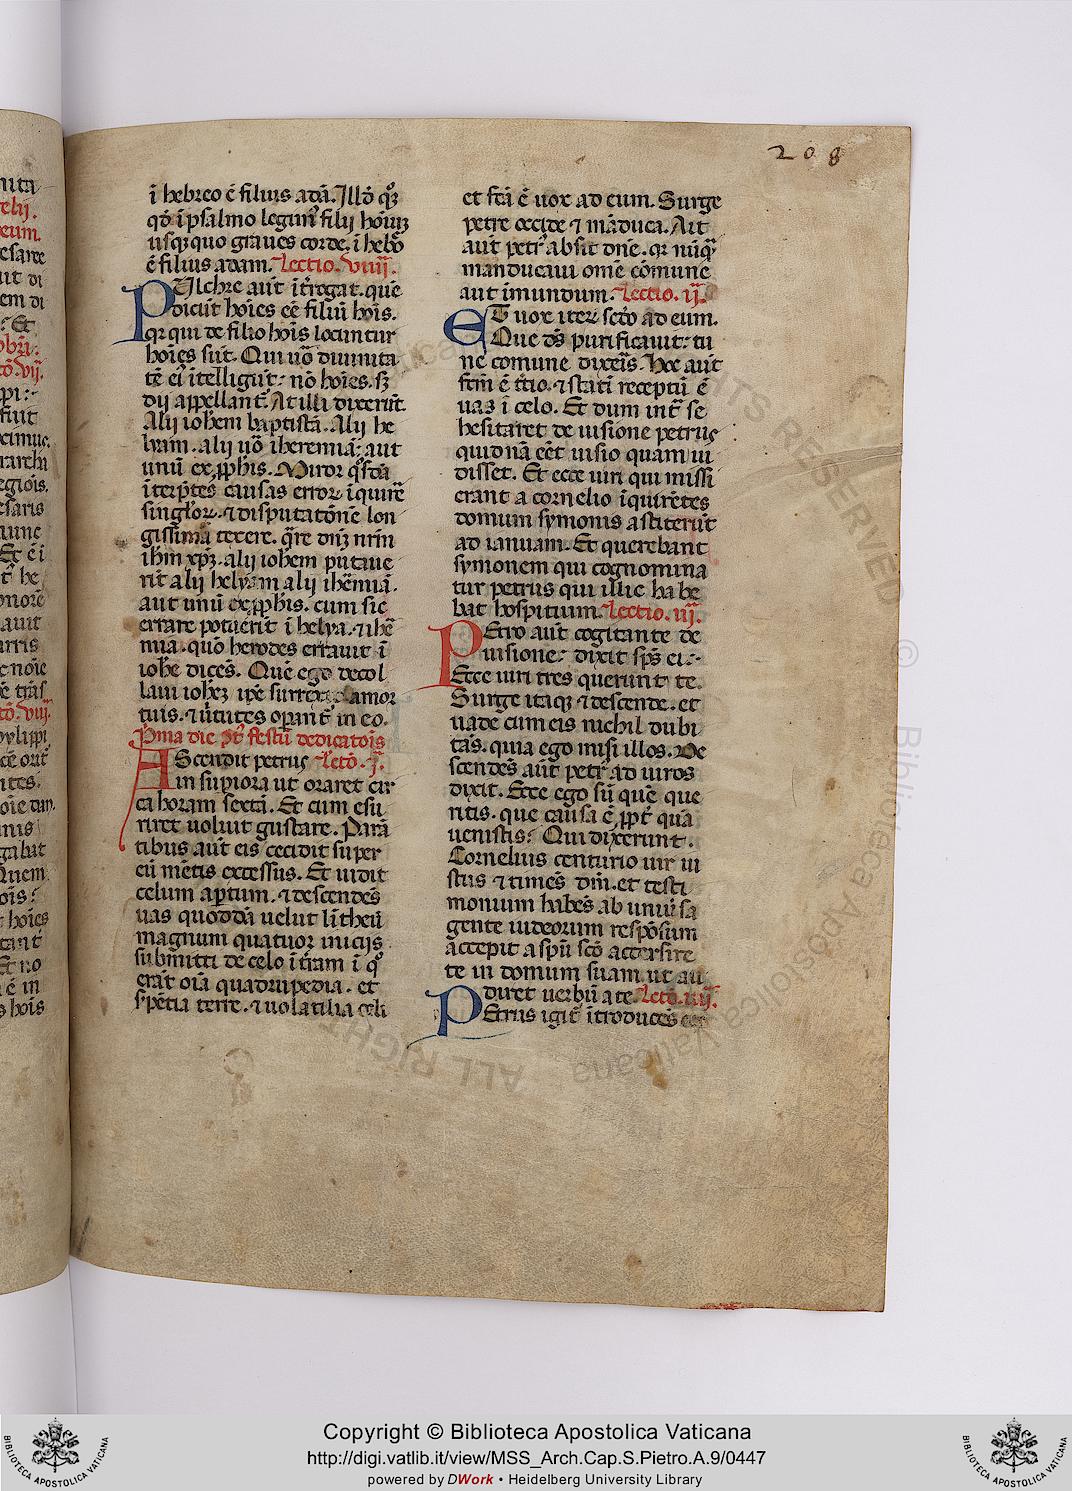 208
ī hebreo ē filius adā. Illō qꝫ
qō ī psalmo leguntˀ filij hoīum
usqꝫquo graues corde. ī hebō
ē filius adam. Lectio. viiij.
PUlchre aūt īt̄rogat. que
dicūt hoīes eē filiū hoīs.
qꝛ qui de filio hoīs locuntur
hoīes sūt. Qui uō diuinita
tē eiˀ ītelligūt: nō hoīes. sꝫ
dij appellant̄. At illi dixerūt.
Alij iohem baptistā. Alij he
lyam. alij uō iheremiā: aut
unū ex ꝓphis. Miror qˀsdā
īterp̄tes causas error̄ īquirē
singlor̄. ⁊ disputatōnē lon
gissimā texere. q̄re dn̄m nrm̄
ihm̄ xp̄m. alij iohem putaue
rīt alij helyam alij ihēmiā.
aut unū ex ꝓphis. cum sic
errare potuerīt ī helya. ⁊ ihē
mia. quō herodes errauit ī
iohe dicēs. Quē ego decol
laui iohēꝫ ip̄e surrexit a mor
tuis. ⁊ ūtutes opant̄ in eo.
P̄ma die pˀ festū dedicatoīs
AScendit petrus Lectō. j.
in supiora ut oraret cir
ca horam sextā. Et cum esu
riret uoluit gustare. Parā
tibus aūt eis cecidit super
eū mētis excessus. Et uidit
celum aptum. ⁊ descendēs
uas quoddā uelut līntheū
magnum quatuor iniciis
submitti de celo ī t̄ram ī qˀ
erāt oīa quadrupedia. et
sp̄entia terre. ⁊ uolatilia celi
et fcā ē uox ad eum. Surge
petre occide ⁊ māduca. Ait
aūt petrˀ absit dn̄e. qꝛ nūqꝫ
manducaui omē cōmune
aut īmundum. Lectio. ij.
ET uox iterˀ scd̄o ad eum.
Que dˀs purificauit: tu
ne comune dixeīs. Hoc aūt
fcm̄ ē t̄tio. ⁊ statī receptū ē
uas ī celo. Et dum int̄ se
hesitaret de uisione petrus
quidnā eēt uisio quam ui
disset. Et ecce uiri qui missi
erant a cornelio īquirētes
domum symonis astiterūt
ad ianuam. Et querebant
symonem qui cognomina
tur petrus qui illic habe
bat hospitium. Lectio. iij.
PEtro aūt cogitante de
uisione: dixit sp̄s ei:
Ecce uiri tres querunt te.
Surge itaqꝫ ⁊ descende. et
uade cum eis nichil dubi
tās. quia ego misi illos. De
scendēs aūt petrˀ ad uiros
dixit. Ecce ego sū quē que
ritis. que causa ē ꝓpt̄ quā
uenistis: Qui dixerunt.
Cornelius centurio uir iu
stus ⁊ timēs dm̄. et testi
monium habēs ab uniūsa
gente iudeorum respōsum
accepit a spū scō accersire
te in domum suam ut au
diret uerbū a te. Lectō. iiij.
PEtrus igit̄ ītroducēs eos
Copyright © Biblioteca Apostolica Vaticana
http://digi.vatlib.it/view/MSS_Arch.Cap.S.Pietro.A.9/0447
powered by DWork • Heidelberg University Library